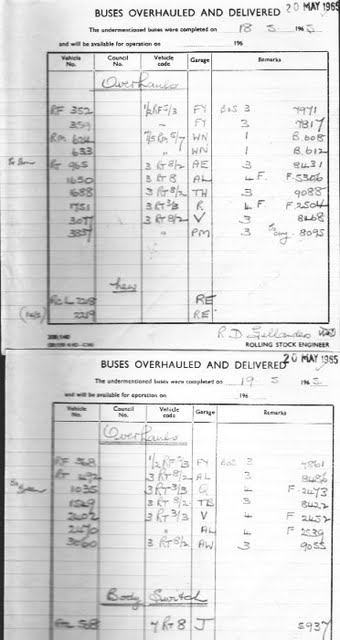 BUSES OVERHAULED AND DELIVERED 20 MAY 1965
The undermentioned buses were completed on 18 5 1965
and will be available for operation on 196
Vehicle No. Council No. Vehicle code Garage Remarks
Overhauls
RF 352 1/2RF5/3 FY BOS 3 7971
359 " FY 3 7817
RM 624 7/5 Rm 5/7 WN 1 B.608
633 " WN 1 B.612
RT 965 3 RT 8/2 AE 3 8431
1650 3 RT 8 AL 4 F. F.5306
1688 3 RT 8/2 TH 3 9088
1751 3 RT 3/3 R 4 F F 2504
3077 3 RT 8/2 V 3 8468
3837 " PM 3 8095
New
RCL 2218 RE
2219 RE
R D
ROLLING STOCK ENGINEER
BUSES OVERHAULED AND DELIVERED 20 MAY 1965
The undermentioned buses were completed on 19 5 1965
and will be available for operation on 196
Vehicle No. Council No. Vehicle code Garage Remarks
Overhauls
RF 368 1/2 RF 5/3 FY BOS 3 7861
RT 492 3 RT 8/2 AL 3 8486
1035 3 RT 3/3 Q 4 F 2473
1549 3 RT 8/2 TB 3 8422
2402 3 RT 3/3 V 4 F 2452
2470 " AL 4 F 2539
3060 3 RT 8/2 AW 3 9055
Body Switch
568 7 RT 8 J 5937